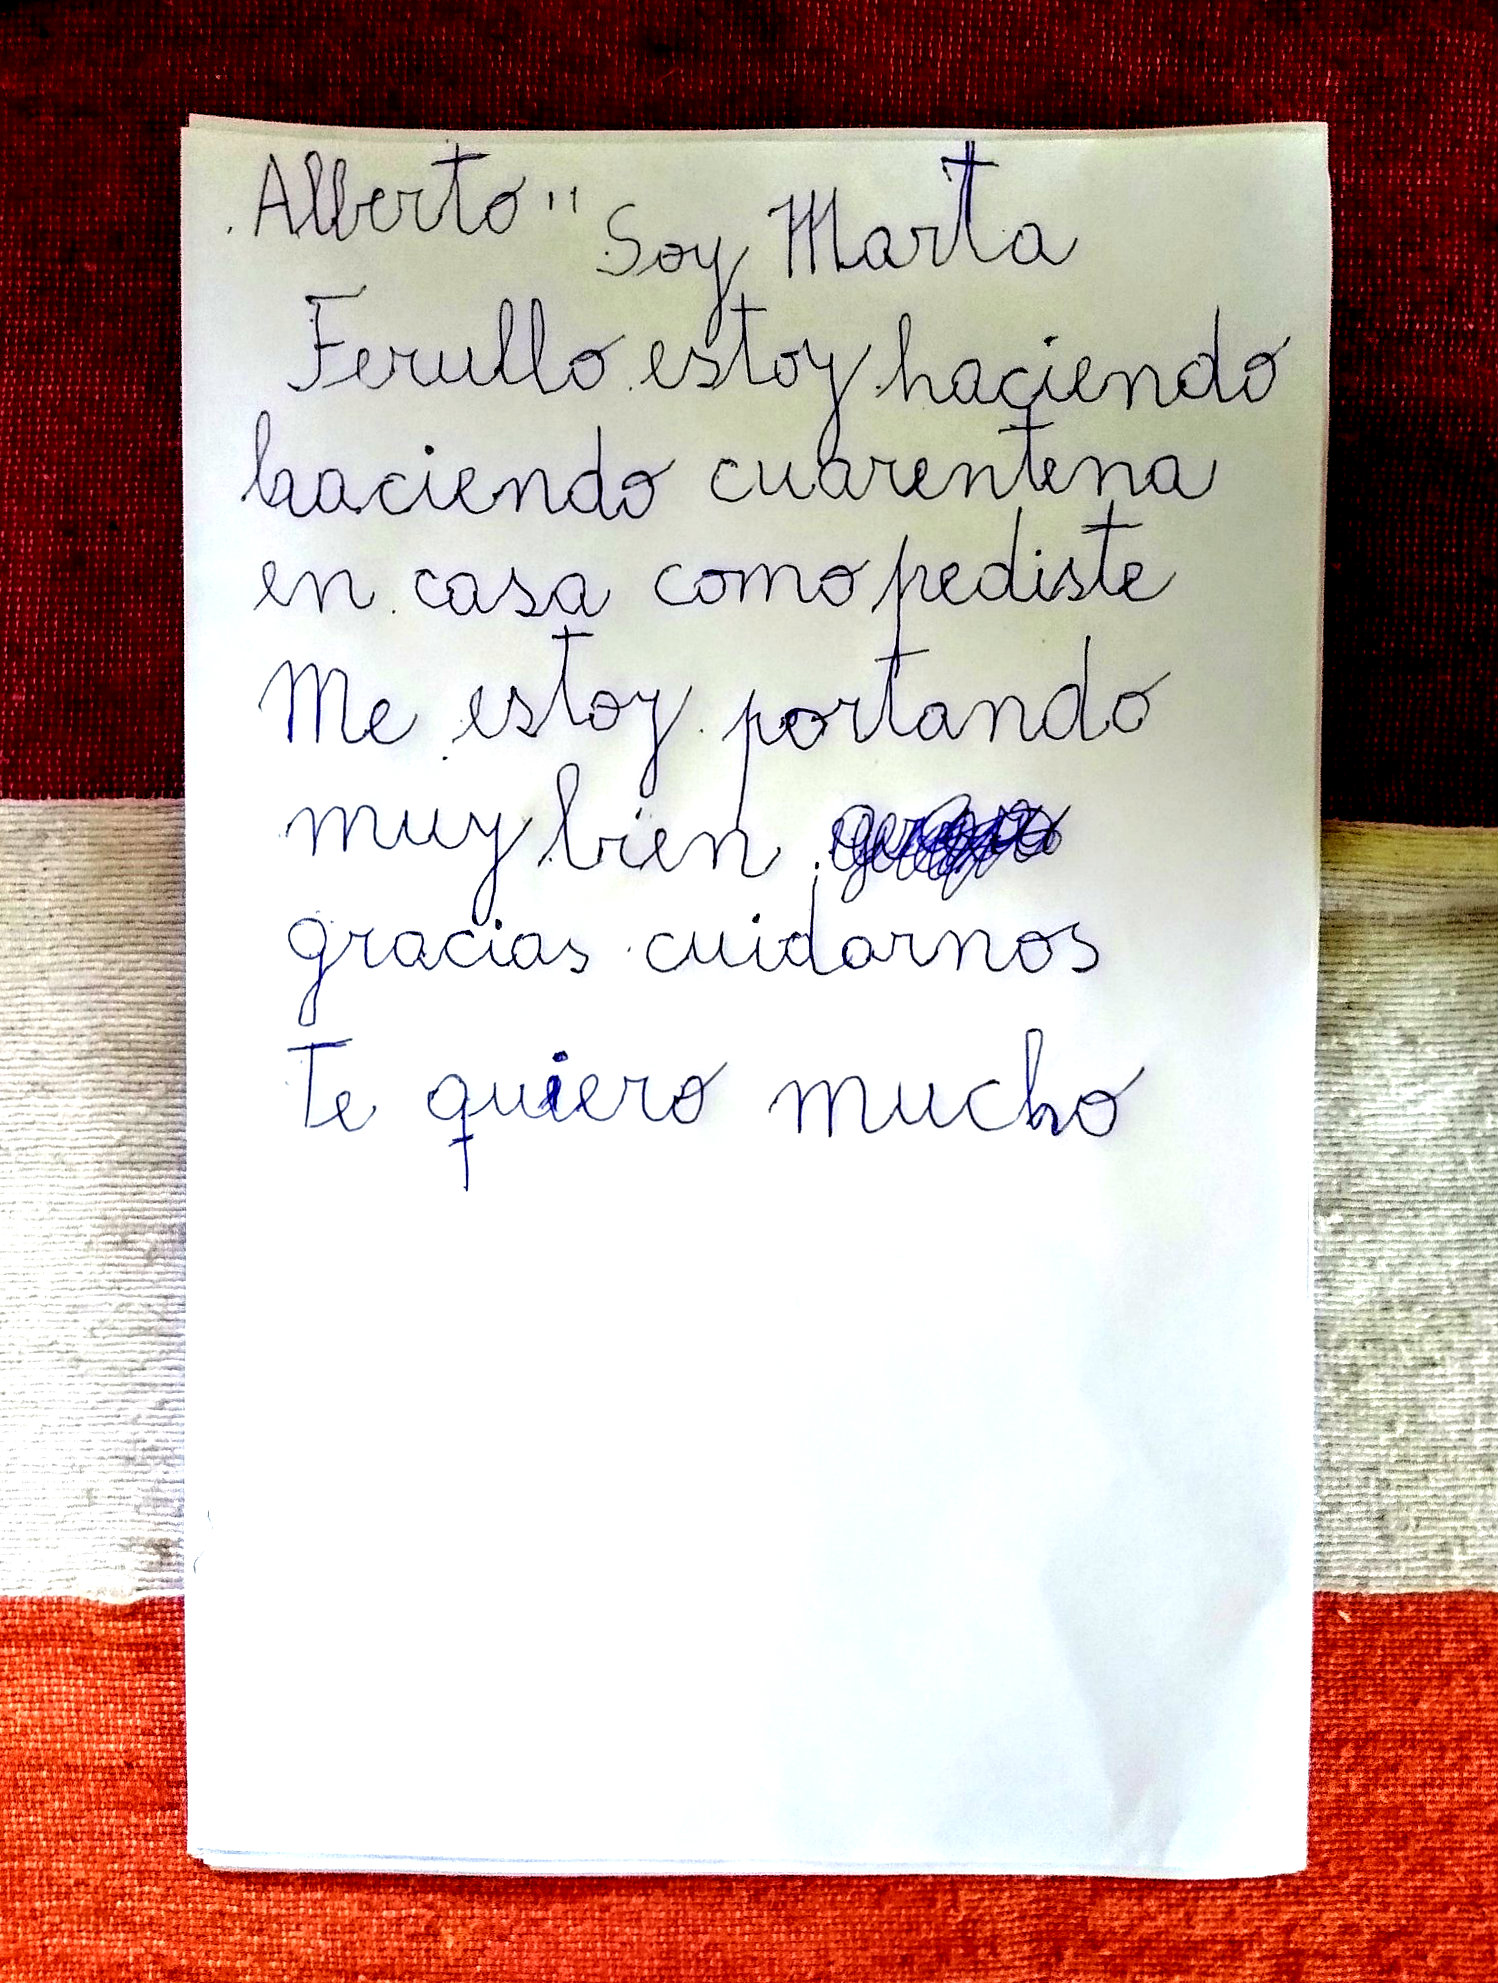 Alberto" Soy Marta
Ferullo estoy haciendo
haciendo cuarentena
en casa como pediste
Me estoy portando
muy bien
gracias cuidarnos
Te quiero mucho